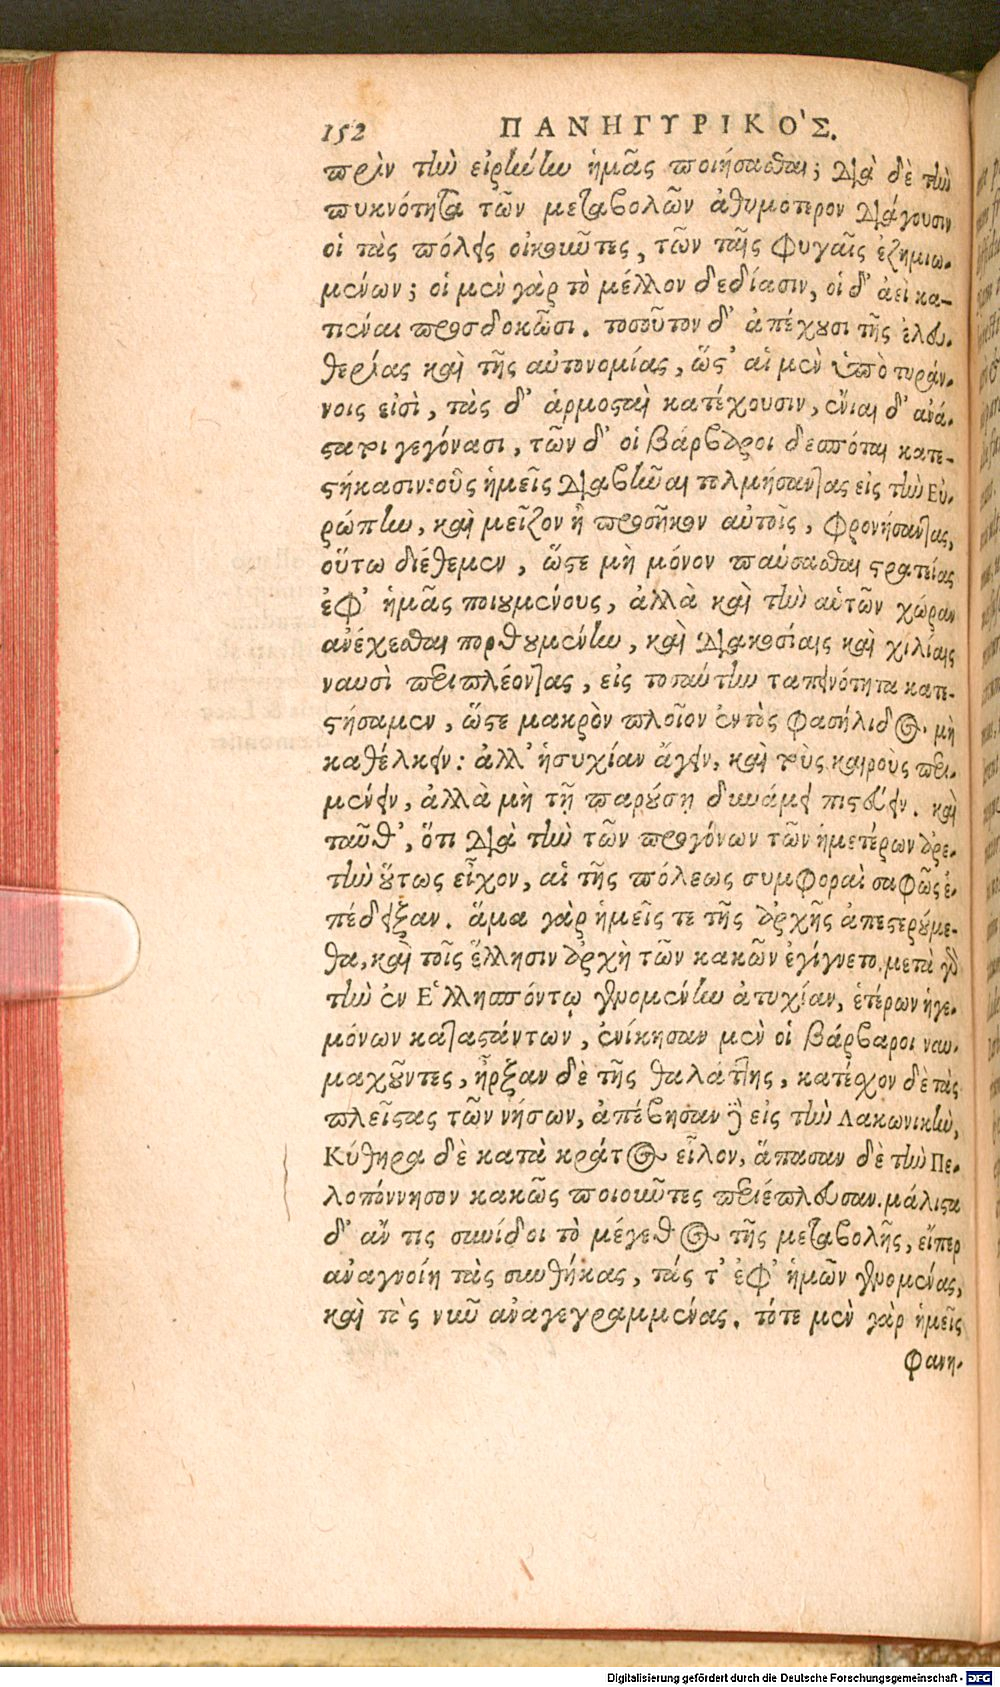 152 ΠΑΝΗΓΥΡΙΚΟ'Σ.
πρὶν τὴν εἰρήνην ἡμᾶς ποιήσασθαι; διὰ δὲ τὴν
πυκνότητα τῶν μεταβολῶν ἀθυμότερον διάγουσιν
οἱ τὰς πόλεις οἰκοῦντες, τῶν ταῖς φυγαῖς ἐζημιω-
μένων; οἱ μὲν γὰρ τὸ μέλλον δεδίασιν, οἱ δ' ἀεὶ κα-
τιέναι προσδοκῶσι. τοσοῦτον δ' ἀπέχουσι τῆς ἐλευ-
θερίας καὶ τῆς αὐτονομίας, ὥστ' αἱ μὲν ὑπὸ τυράν-
νοις εἰσὶ, τὰς δ' ἁρμοσταὶ κατέχουσιν, ἔνιαι δ' ἀνά-
στατοι γεγόνασι, τῶν δ' οἱ βάρβαροι δεσπόται κατε-
στήκασιν: οὓς ἡμεῖς διαβῆναι τολμήσαντας εἰς τὴν Εὐ-
ρώπην, καὶ μεῖζον ἢ προσῆκον αὐτοῖς, φρονήσαντας,
οὕτω διέθεμεν, ὥστε μὴ μόνον παύσασθαι στρατείας
ἐφ' ἡμᾶς ποιουμένους, ἀλλὰ καὶ τὴν αὑτῶν χώραν
ἀνέχεσθαι πορθουμένην, καὶ διακοσίαις καὶ χιλίαις
ναυσὶ περιπλέοντας, εἰς τοσαύτην ταπεινότητα κατε-
στήσαμεν, ὥστε μακρὸν πλοῖον ἐντὸς Φασήλιδος μὴ
καθέλκειν: ἀλλ' ἡσυχίαν ἄγειν, καὶ τοὺς καιροὺς περι-
μένειν, ἀλλὰ μὴ τῇ παρούσῃ δυνάμει πιστεύειν. καὶ
ταῦθ', ὅτι διὰ τὴν τῶν προγόνων τῶν ἡμετέρων ἀρε-
τὴν οὕτως εἶχον, αἱ τῆς πόλεως συμφοραὶ σαφῶς ἐ-
πέδειξαν. ἅμα γὰρ ἡμεῖς τε τῆς ἀρχῆς ἀπεστερούμε-
θα, καὶ τοῖς ἕλλησιν ἀρχὴ τῶν κακῶν ἐγίγνετο. μετὰ γὰρ
τὴν ἐν Ἑλλησπόντῳ γενομένην ἀτυχίαν, ἑτέρων ἡγε-
μόνων καταστάντων, ἐνίκησαν μὲν οἱ βάρβαροι ναυ-
μαχοῦντες, ἦρξαν δὲ τῆς θαλάττης, κατέσχον δὲ τὰς
πλείστας τῶν νήσων, ἀπέβησαν δὲ εἰς τὴν Λακωνικὴν,
Κύθηρα δὲ κατὰ κράτος εἷλον, ἅπασαν δὲ τὴν Πε-
λοπόννησον κακῶς ποιοῦντες περιέπλευσαν. μάλιστα
δ' ἄν τις συνίδοι τὸ μέγεθος τῆς μεταβολῆς, εἴπερ
ἀναγνοίη τὰς συνθήκας, τάς τ' ἐφ' ἡμῶν γενομένας,
καὶ τὰς νῦν ἀναγεγραμμένας. τότε μὲν γὰρ ἡμεῖς
φανη-
Digitalisierung gefördert durch die Deutsche Forschungsgemeinschaft - DFG